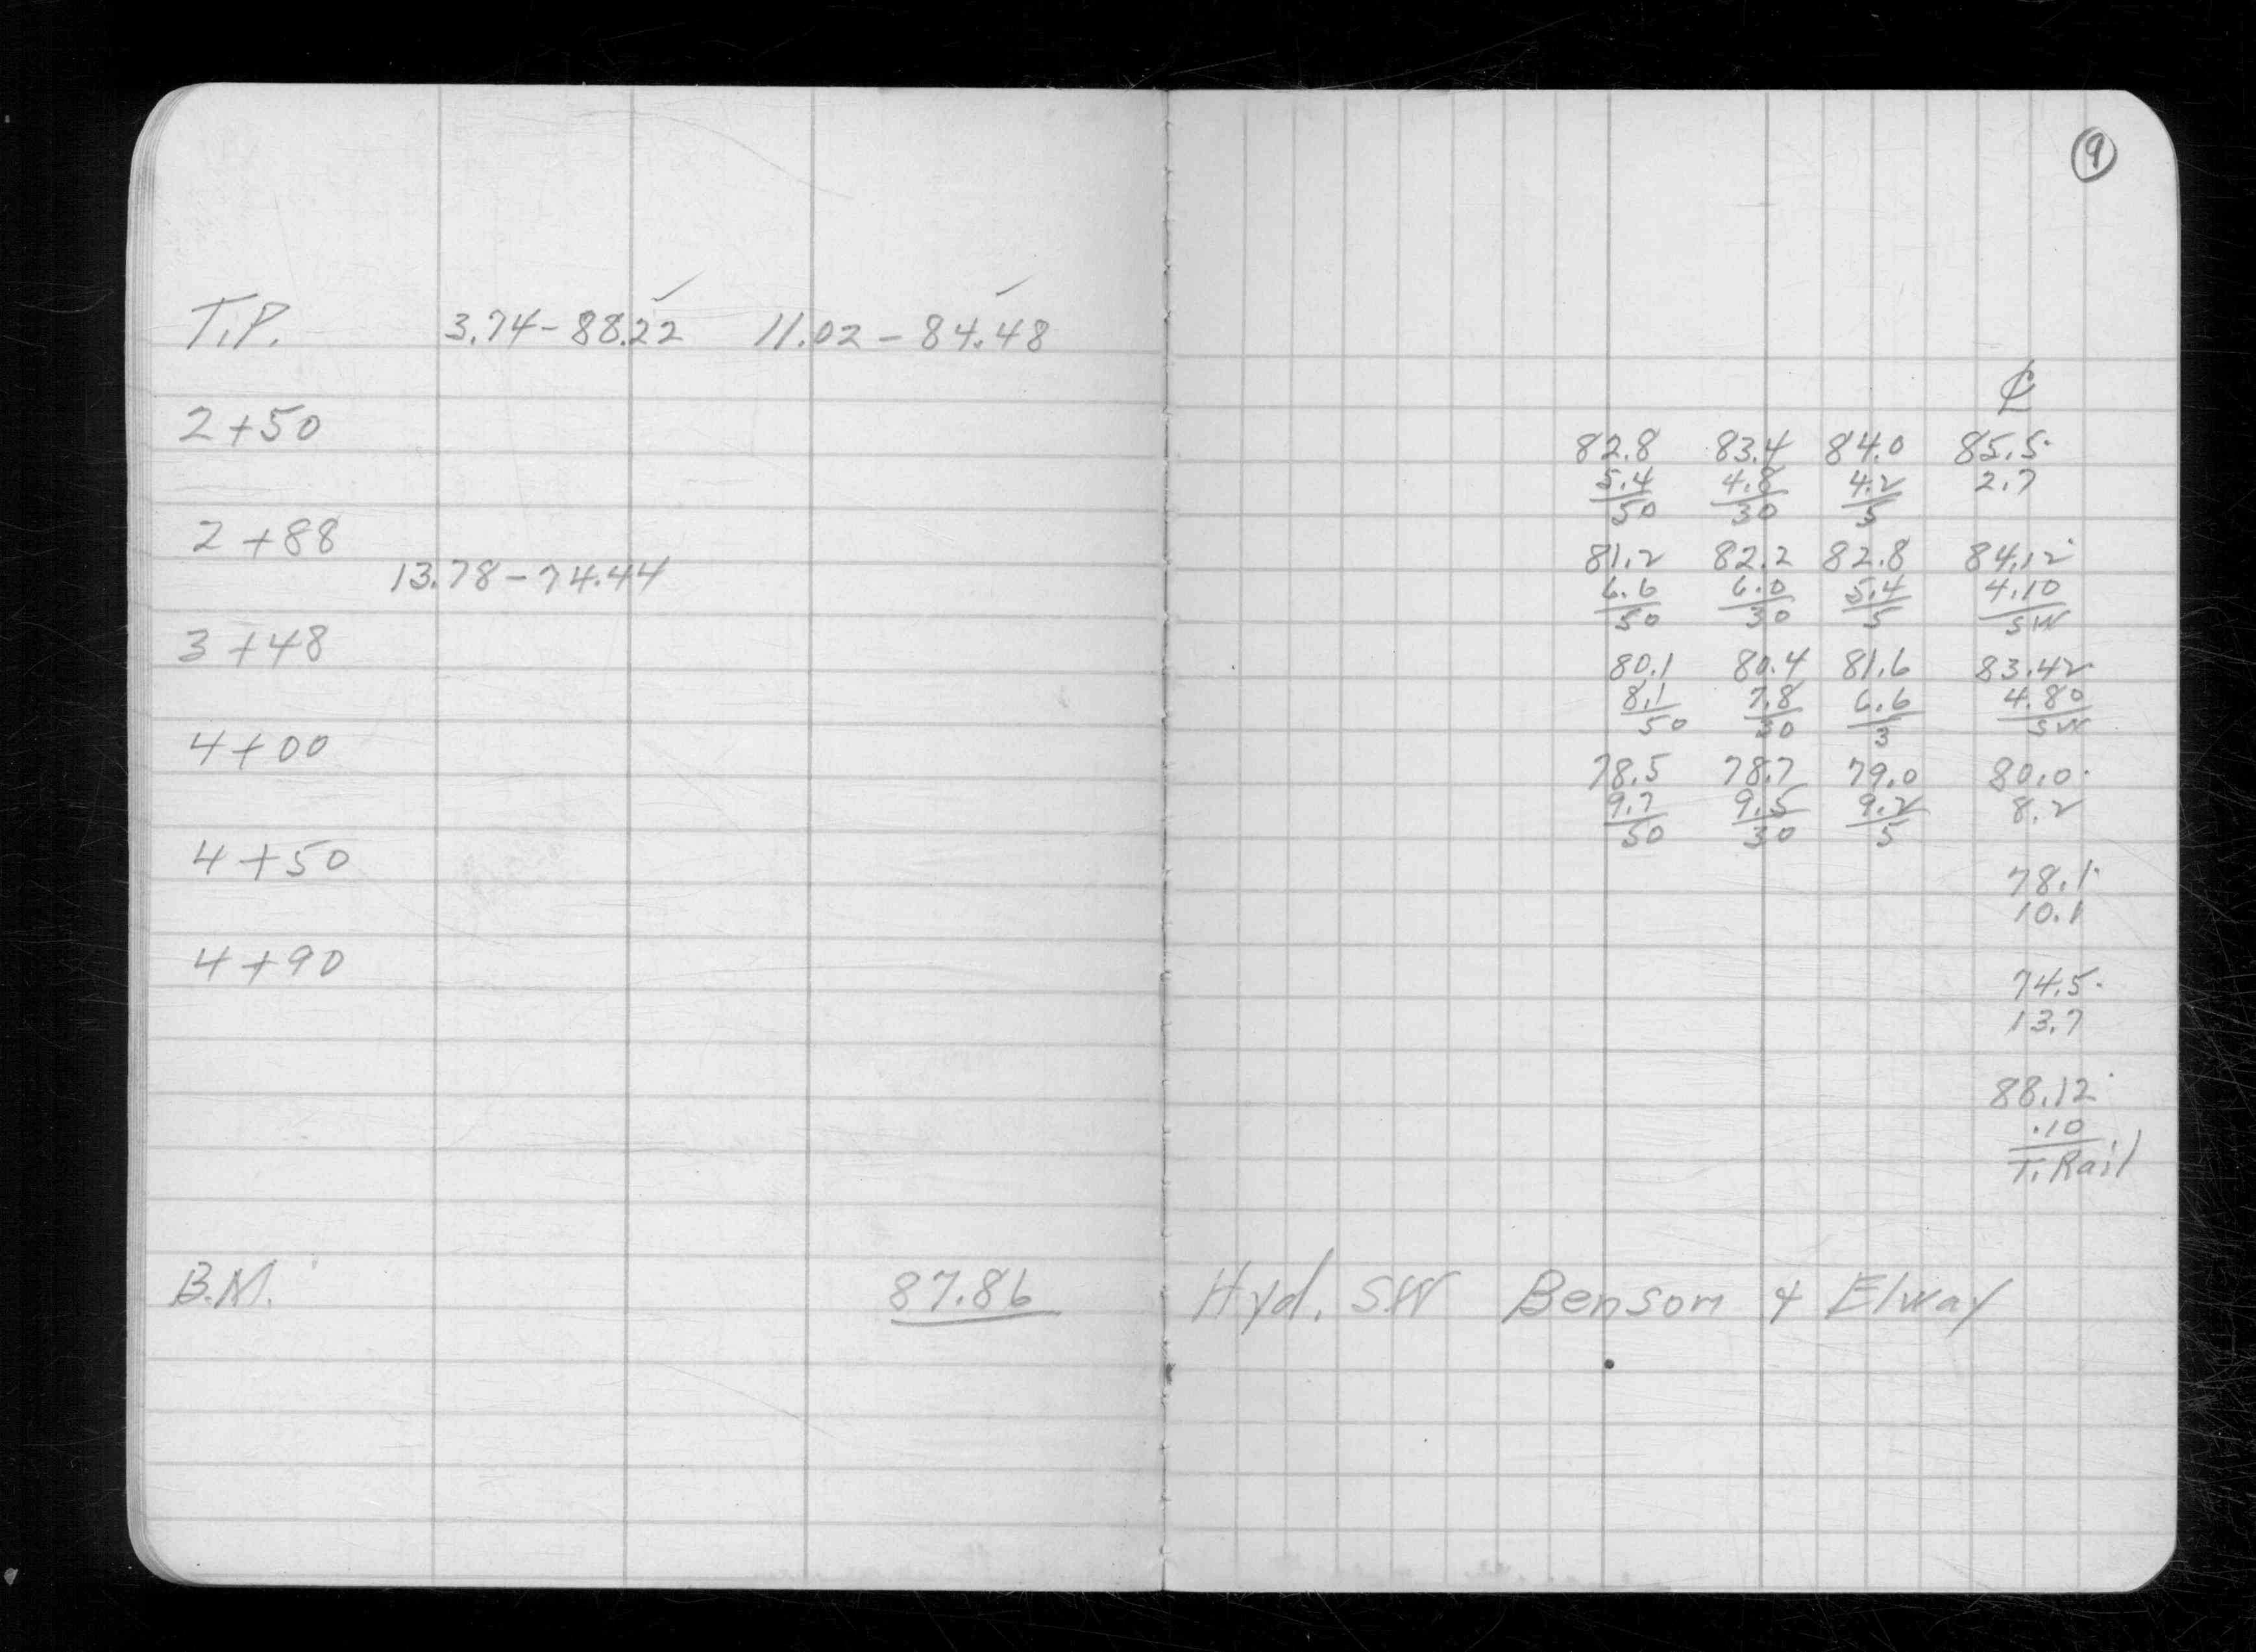 9
T.P. 3.74-88.22 11.02-84.48
℄
2+50
82.8 83.4 84.0 85.5
5.4 4.8 4.2 2.7
50 30 5
2+88
81.2 82.2 82.8 84.12
6.6 6.0 5.4 4.10
50 30 5 SW
13.78-74.44
3+48
80.1 80.4 81.6 83.42
8.1 7.8 6.6 4.80
50 30 3 SW
4+00
78.5 78.7 79.0 80.0
9.7 9.5 9.2 8.2
50 30 5
4+50
78.1
10.1
4+90
74.5
13.7
88.12
.10
T.Rail
B.M. 87.86 Hyd. SW Bensom & Elway